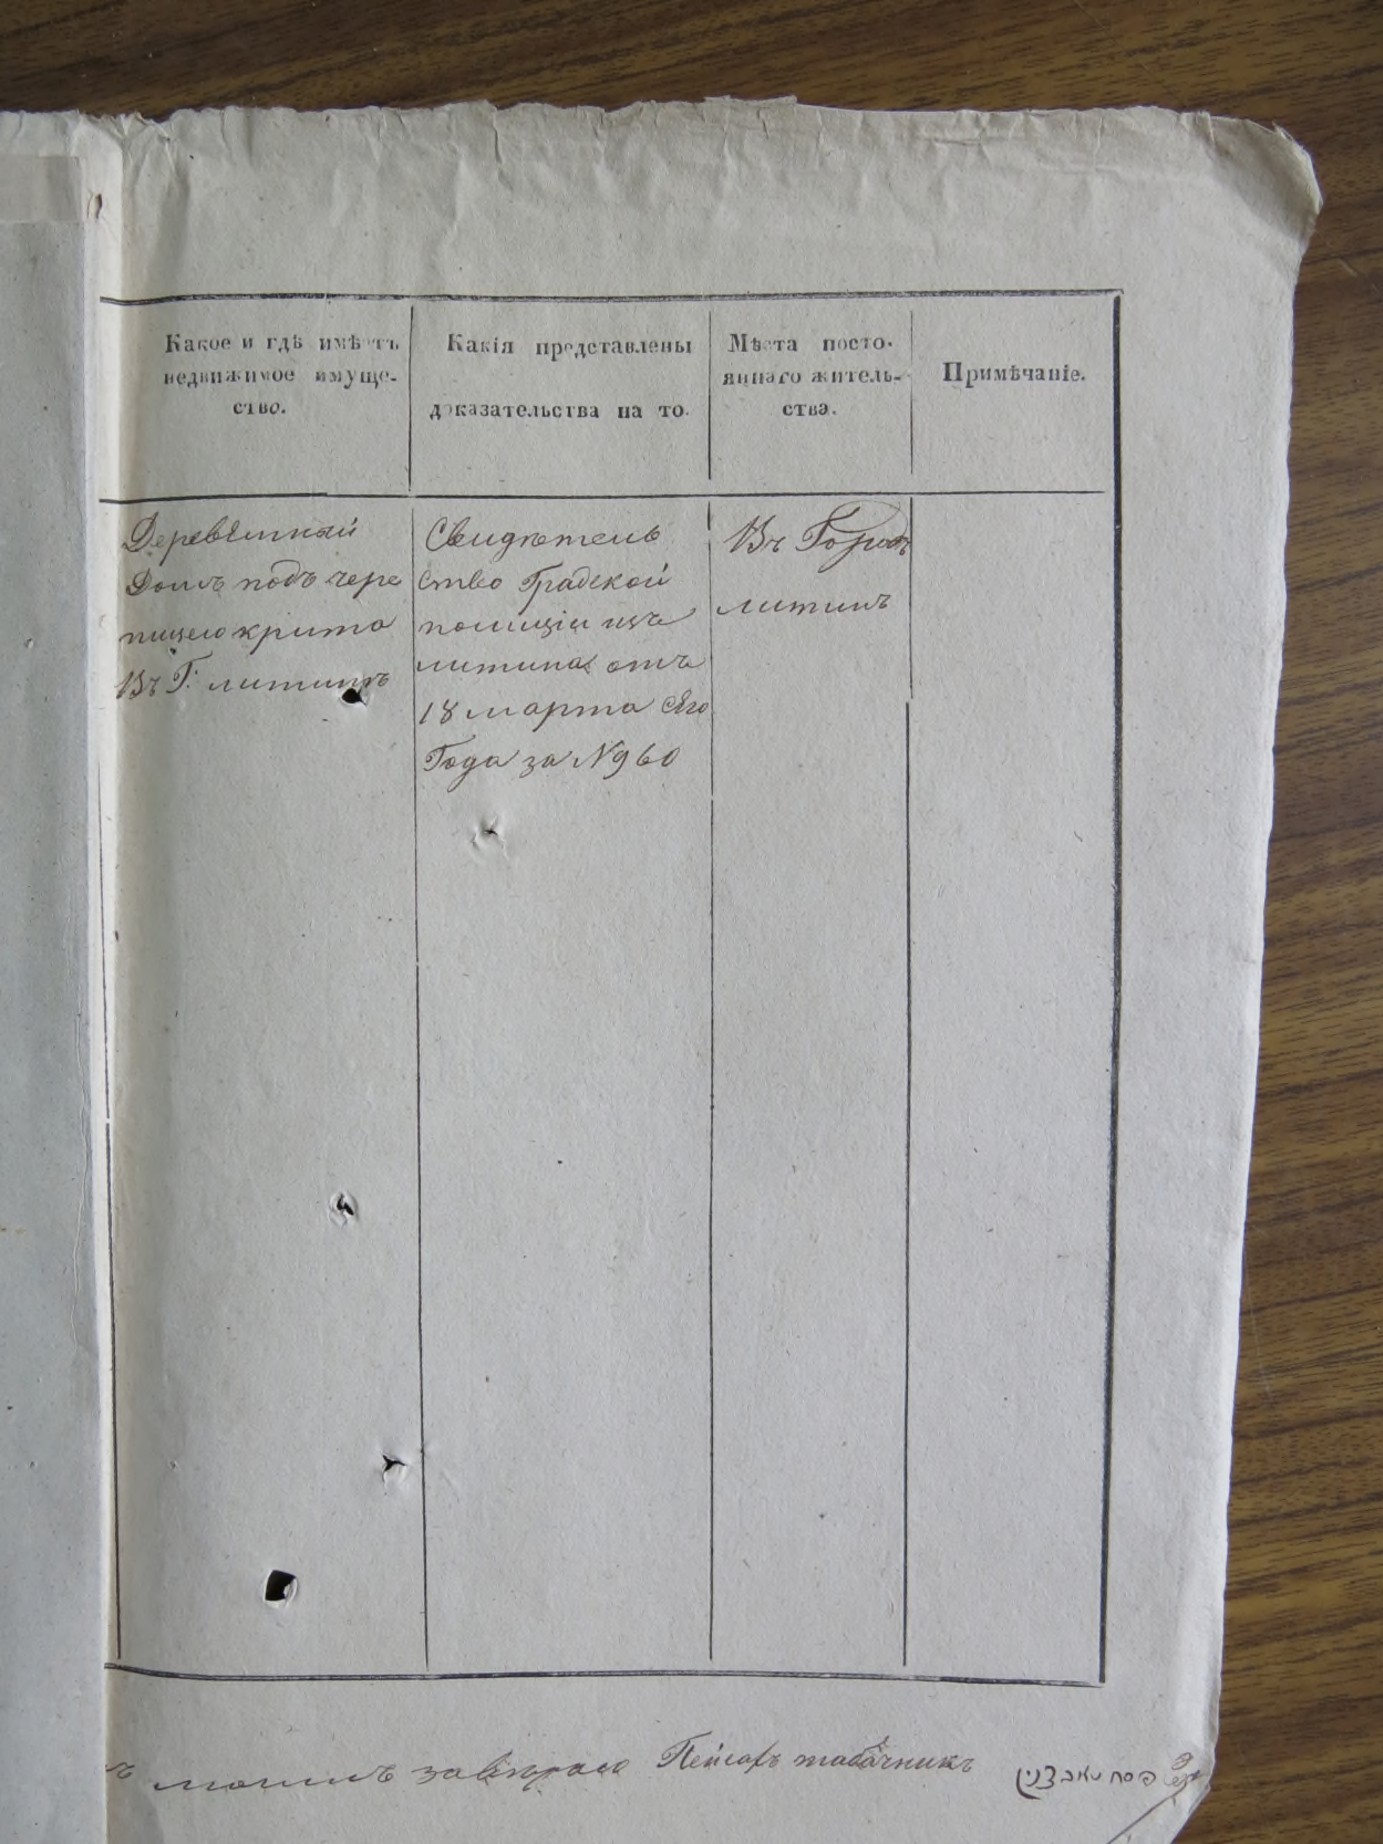 Какое и гдѣ имѣетъ
недвижимое имуще-
ство.
Какія представлены
доказательства на то.
Мѣста посто-
яннаго житель-
ства.
Примѣчаніе.
Деревянный
Домъ подъ чере
пицею крита
Въ Г: литинѣ
Свидѣтель
ство Градской
полиціи изъ
литина отъ
18 марта сего
Года за N960
Въ Городѣ
литинѣ
моимъ завѣряю Пейсахъ табачникъ
פסח